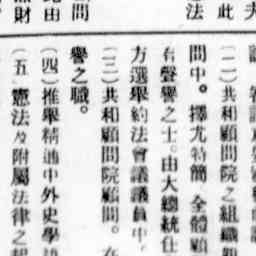 此
法
顧問
財
（二）共和顧問院之組織
問中。擇尤特簡。全體顧
有聲譽之士。由大總統任
方選舉約法會議議員中。
（三）共和顧問院顧問。在
譽之職。
（四）推舉精通中外史學
（五）憲法及附屬法律之起